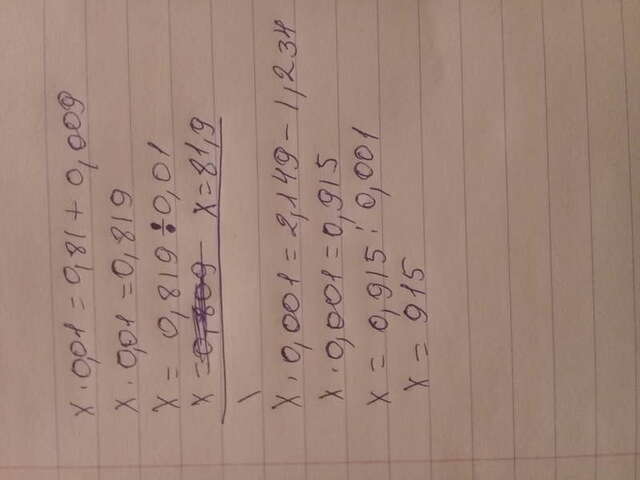 x · 0,01 = 0,81 + 0,009
x · 0,01 = 0,819
x = 0,819 ÷ 0,01
x = x = 81,9
x · 0,001 = 2,149 - 1,234
x · 0,001 = 0,915
x = 0,915 : 0,001
x = 915